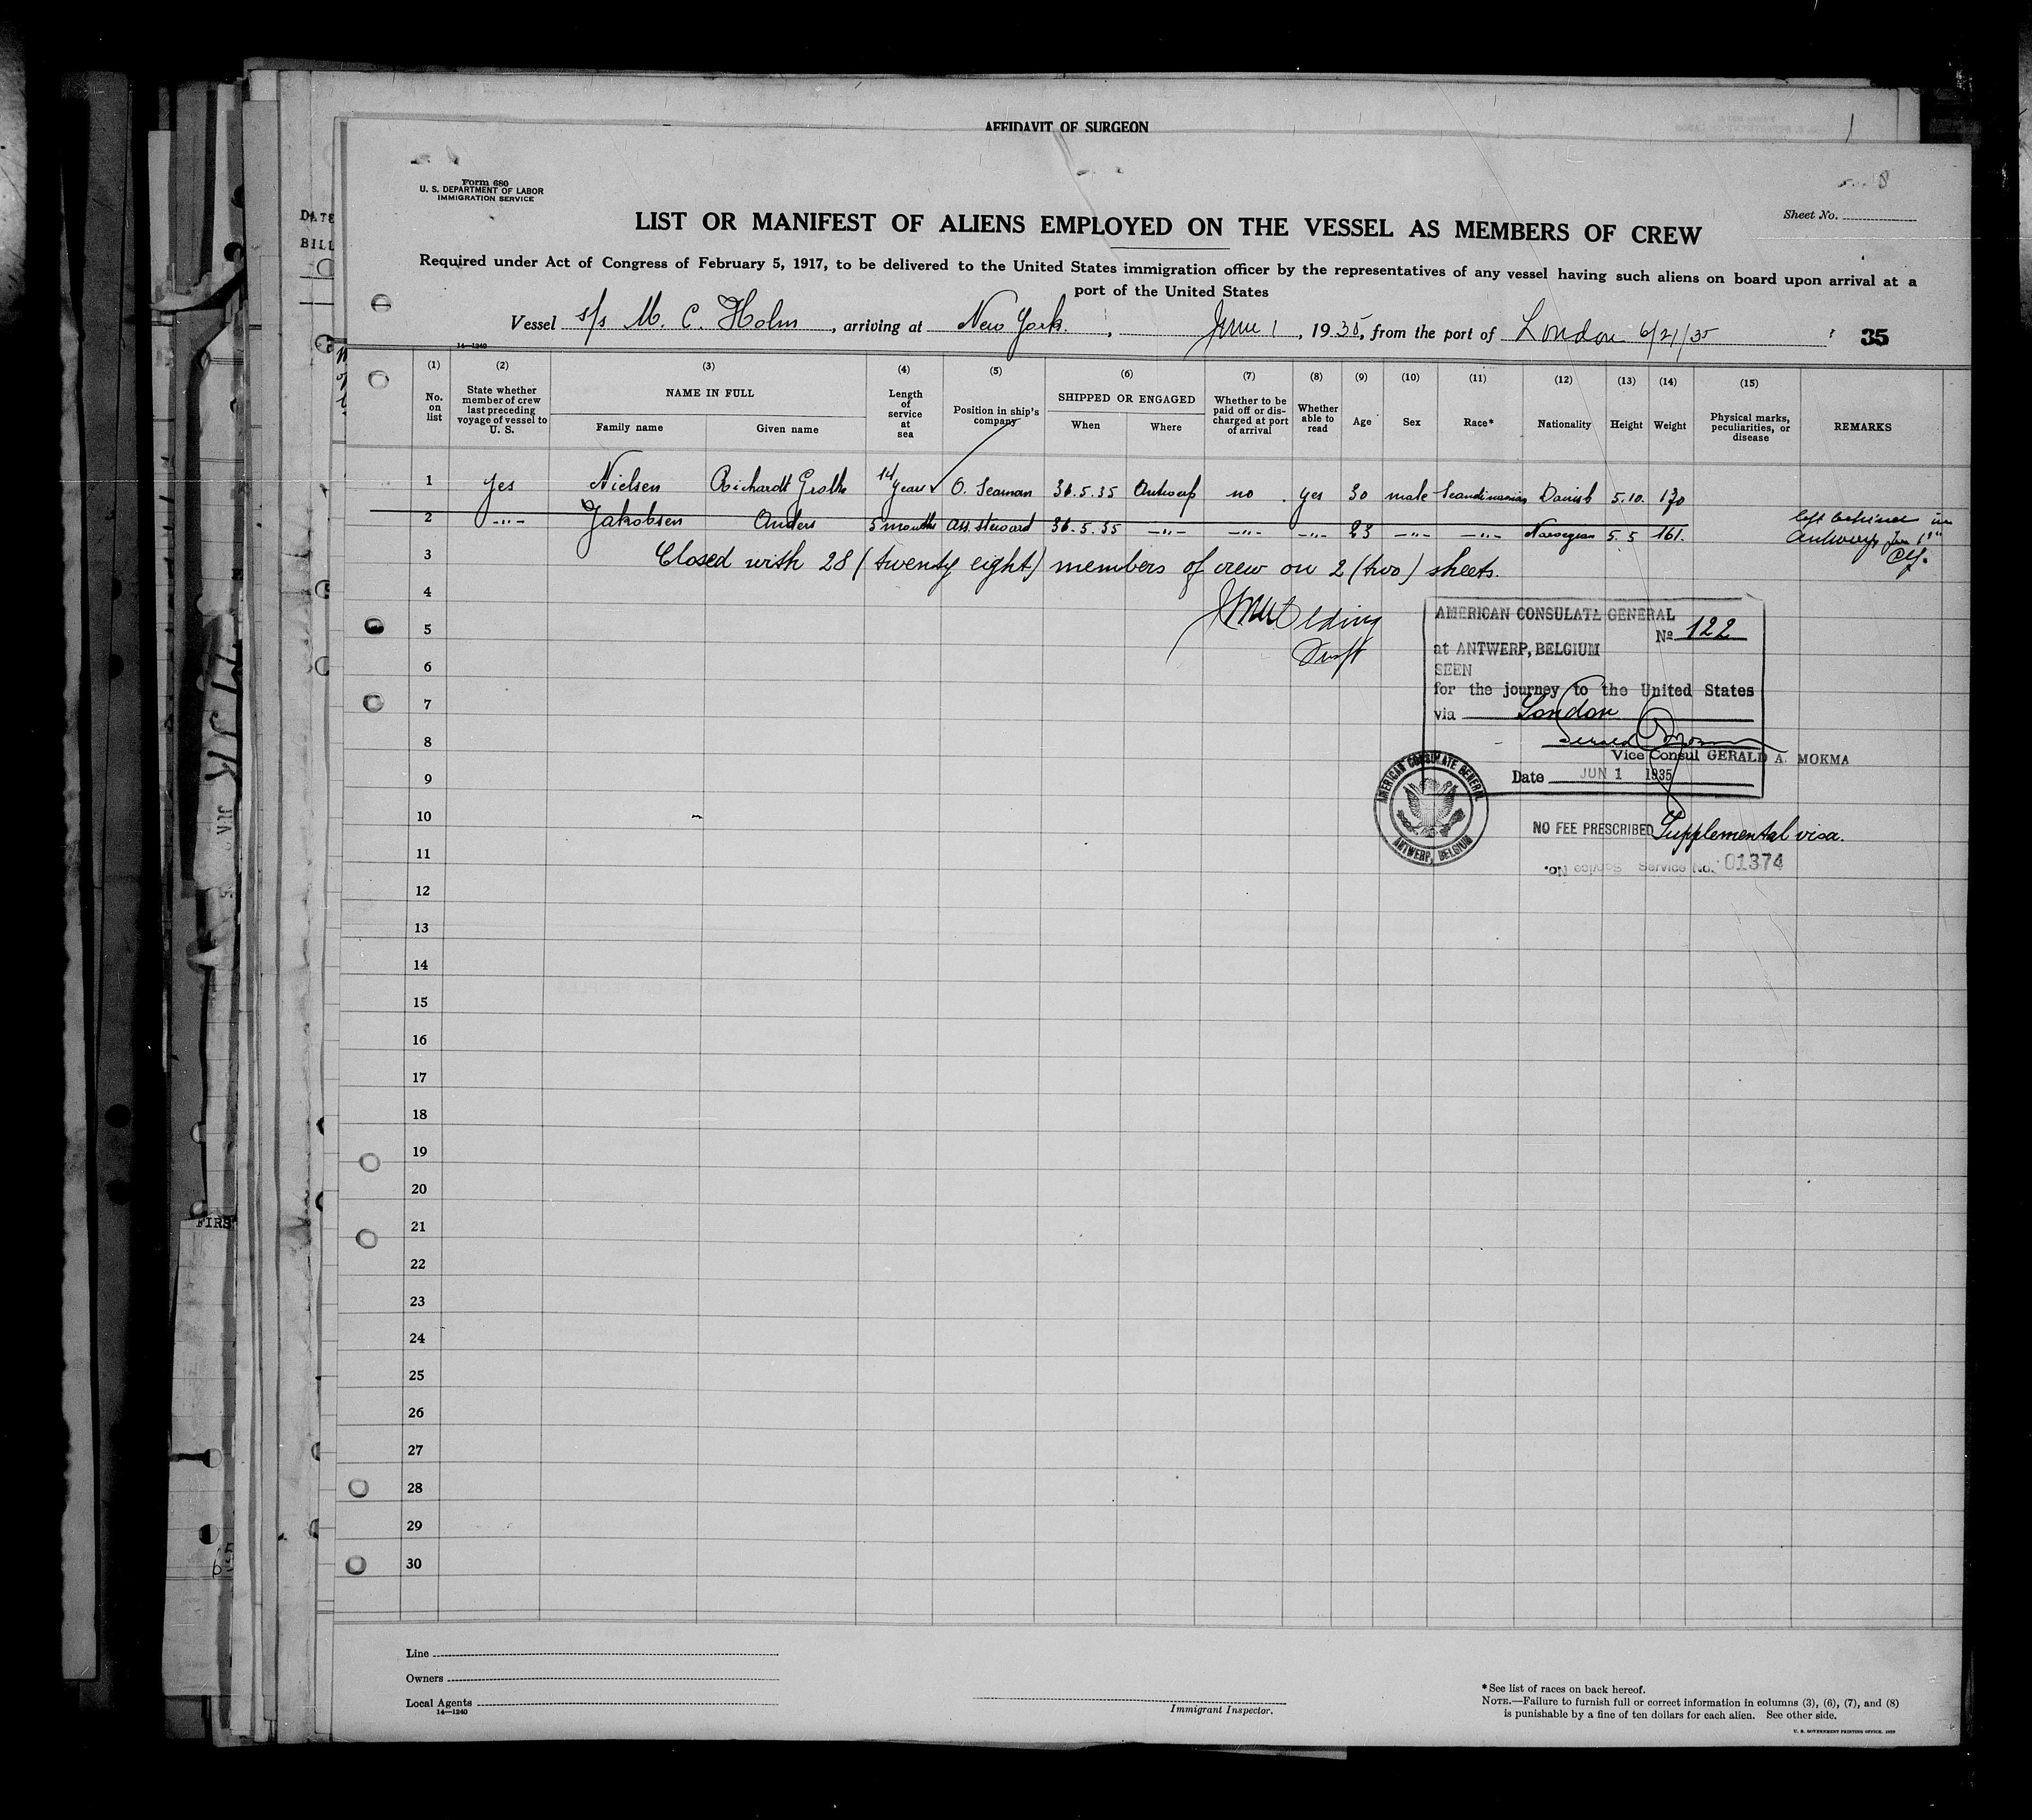 AFFIDAVIT OF SURGEON
Form 680
U. S. DEPARTMENT OF LABOR
IMMIGRATION SERVICE
DATE
BILL
Sheet No.
LIST OR MANIFEST OF ALIENS EMPLOYED ON THE VESSEL AS MEMBERS OF CREW
Required under Act of Congress of February 5, 1917, to be delivered to the United States immigration officer by the representatives of any vessel having such aliens on board upon arrival at a
port of the United States
Vessel s/s M. C. Holm, arriving at New York, June 1, 1935, from the port of London 6/21/35 35
14-1240
(1) (2) (3) (4) (5) (6) (7) (8) (9) (10) (11) (12) (13) (14) (15)
No. on list State whether member of crew last preceding voyage of vessel to U. S. NAME IN FULL Family name Given name Length of service at sea Position in ship's company SHIPPED OR ENGAGED When Where Whether to be paid off or discharged at port of arrival Whether able to read Age Sex Race* Nationality Height Weight Physical marks, peculiarities, or disease REMARKS
1 yes Nielsen Richardt Grothe 14 years O. Seaman 31.5.35 Antwerp no yes 30 male Scandinavian Danish 5.10. 170
2 -"- Jakobsen Anders 5 months ass. steward 31.5.35 -"- -"- -"- 23 -"- -"- Norwegian 5.5 161. left behind in
Antwerp
3 Closed with 28 (twenty eight) members of crew on 2 (two) sheets.
4
5
6
7
8
9
10
11
12
13
14
15
16
17
18
19
20
21
22
23
24
25
26
27
28
29
30
AMERICAN CONSULATE GENERAL
No 122
at ANTWERP, BELGIUM
SEEN
for the journey to the United States
via London
Vice Consul GERALD A. MOKMA
Date JUN 1 1935
AMERICAN CONSULATE GENERAL
ANTWERP, BELGIUM
NO FEE PRESCRIBED Supplemental visa.
Service No. 01374
FIRS
Line
Owners
Local Agents
14-1240
Immigrant Inspector.
*See list of races on back hereof.
NOTE.—Failure to furnish full or correct information in columns (3), (6), (7), and (8)
is punishable by a fine of ten dollars for each alien. See other side.
U. S. GOVERNMENT PRINTING OFFICE. 1929